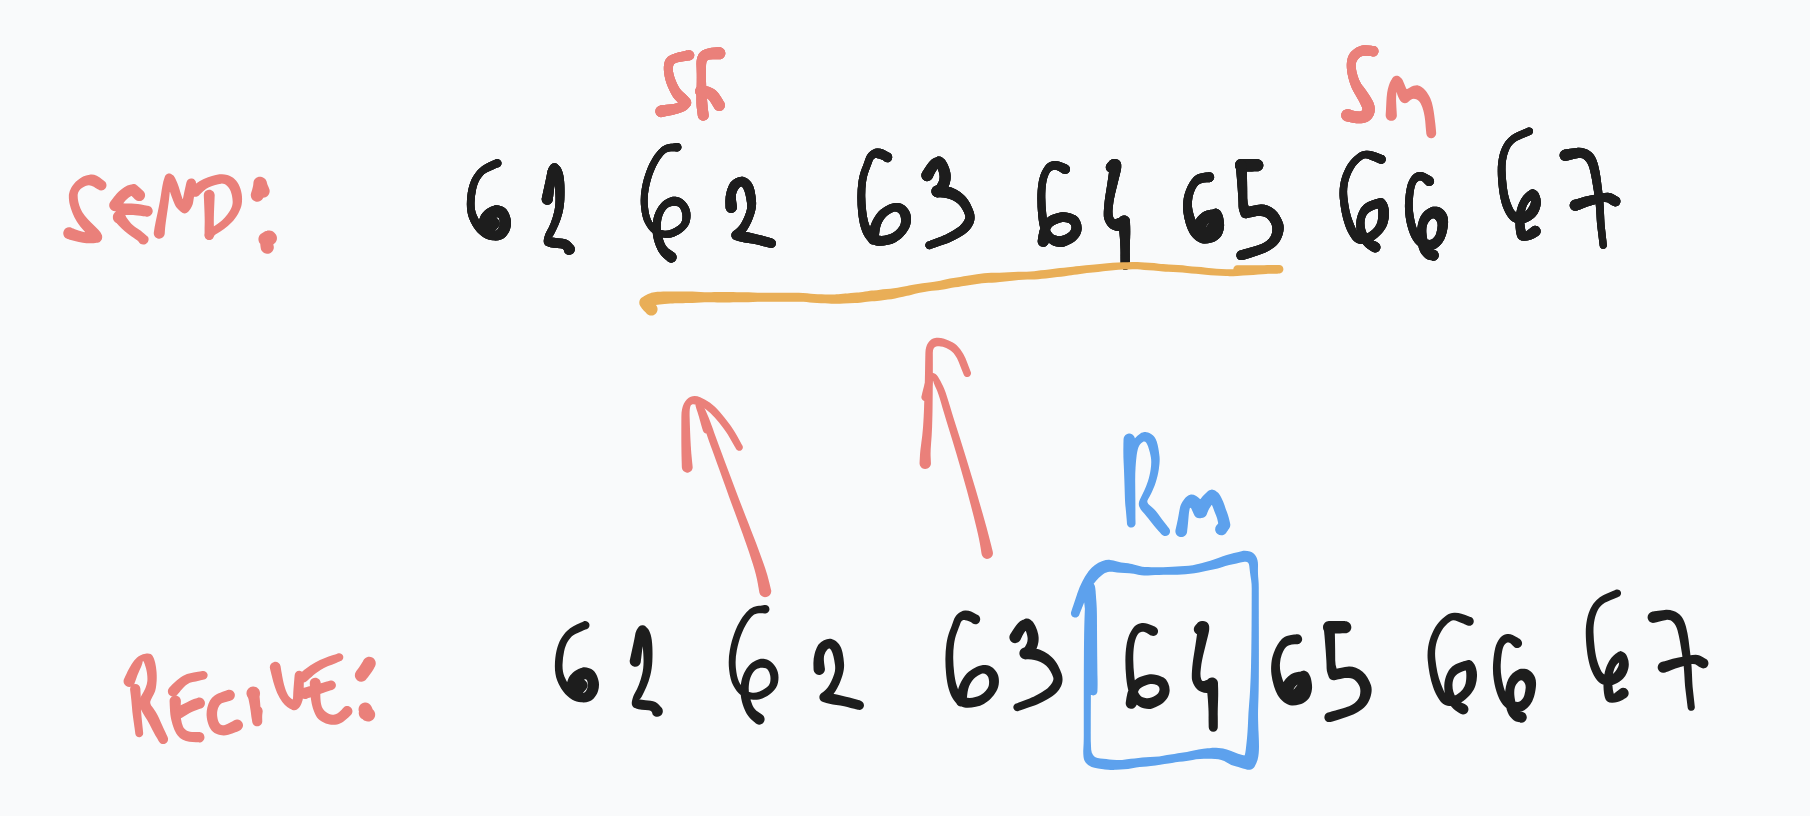 Sf Sn
SEND: 61 62 63 64 65 66 67
Rn
RECIVE: 61 62 63 64 65 66 67